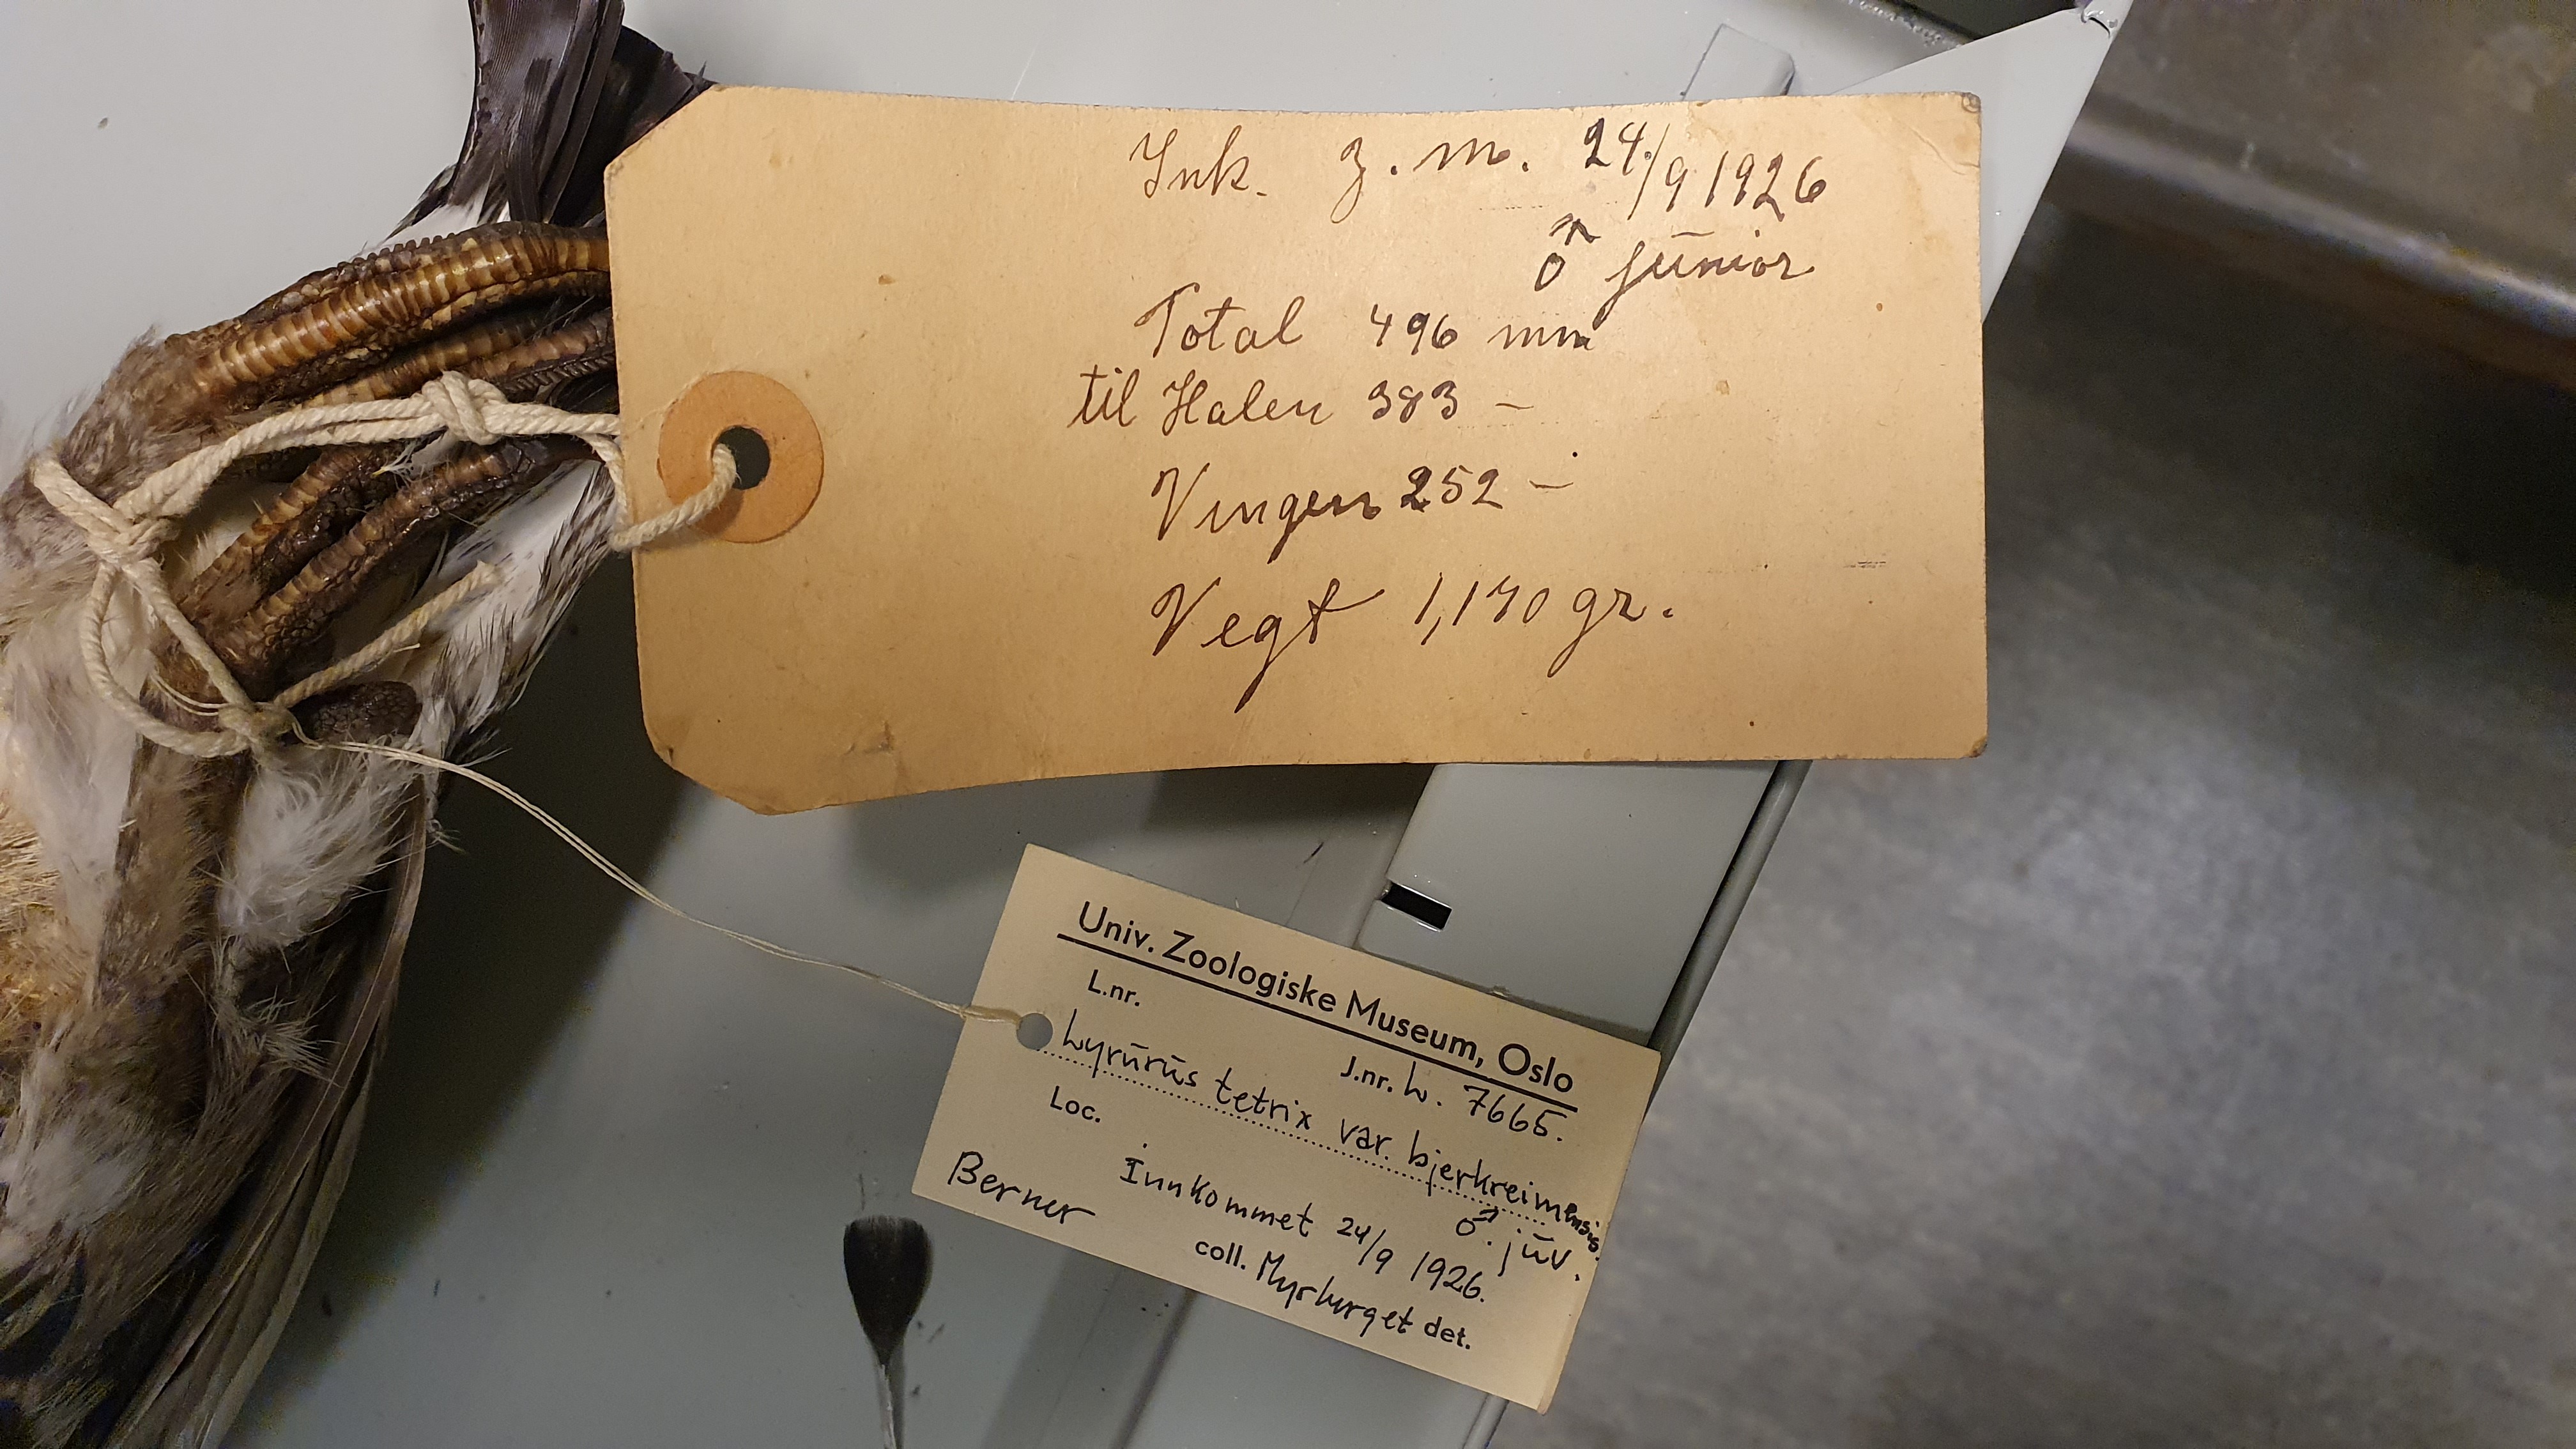 Ink. Z. M. 24/9 1926
♂ junior
Total 496 mm
til Halen 383 –
Vingen 252 –
Vegt 1,170 gr.
Univ. Zoologiske Museum, Oslo
L.nr. J.nr. L. 7665.
Lyrurus tetrix var. bjerkreimensis.
Loc. ♂. juv.
Innkommet 24/9 1926.
Berner coll. det.